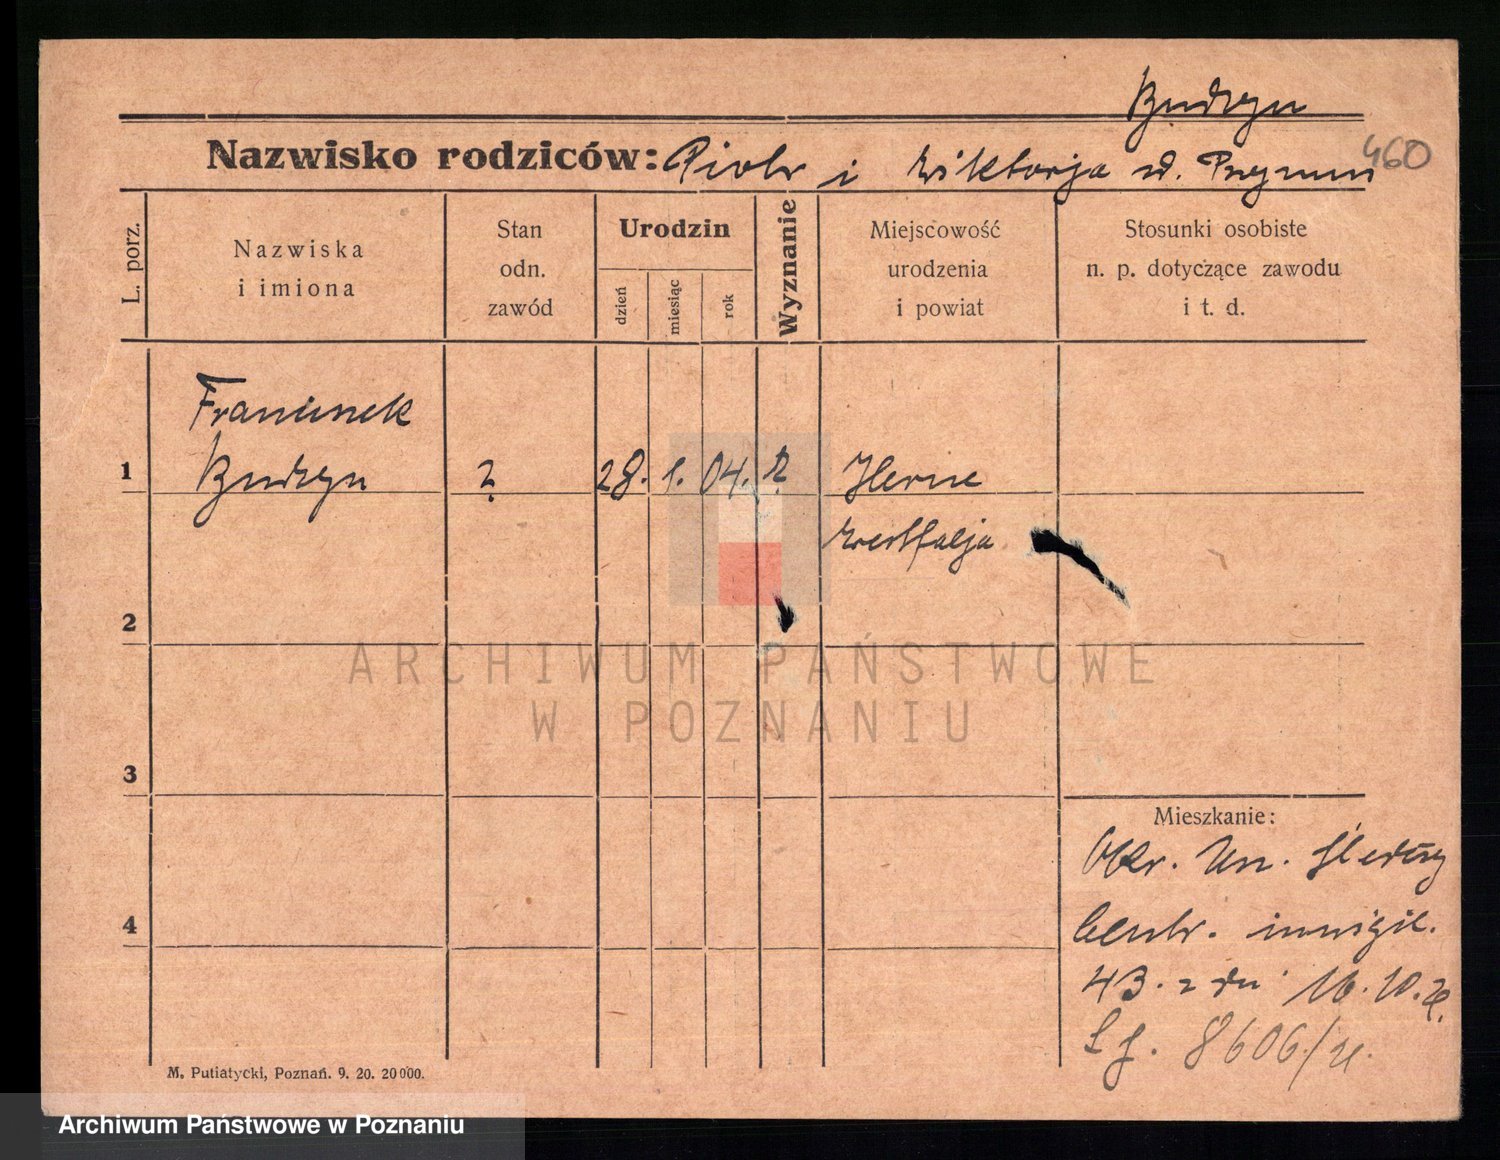 Budzyn
Nazwisko rodziców: Piotr i Wiktorja
460
L. porz.
Nazwiska
i imiona
Stan
odn.
zawód
Urodzin
dzień
miesiąc
rok
Wyznanie
Miejscowość
urodzenia
i powiat
Stosunki osobiste
n. p. dotyczące zawodu
i t. d.
Franciszek
1 Budzyn ? 28. 1. 04. ? Herne
Westfalja
2
3
4
ARCHIWUM PAŃSTWOWE
W POZNANIU
Mieszkanie:
Okr. Urz. Śledczy
Centr. inwigil.
43. z dn 16.10.
L. j. 8606/
M. Putiatycki, Poznań. 9. 20. 20000.
Archiwum Państwowe w Poznaniu